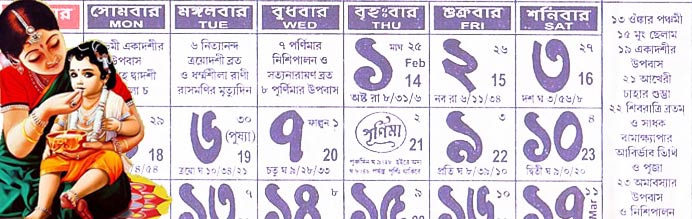 সোমবার মঙ্গলবার বুধবার বৃহঃবার শুক্রবার শনিবার
MON TUE WED THU FRI SAT
একাদশীর
উপবাস
৬ নিত্যানন্দ
ত্রয়োদশী ব্রত
ও ধর্ম্মশীলা রাণী
রাসমণির মৃত্যুদিন
৭ পূর্ণিমার
নিশিপালন ও
সত্যনারায়ণ ব্রত
৮ পূর্ণিমার উপবাস
১ মাঘ ২৫
Feb
14
অষ্ট রা ৮/৩১/৬
২ ২৬
15
নব রা ৬/১১/৩৪
৩ ২৭
16
দশ ঘ ৩/৫৬/৮
২৯
18
৬ ৩০
(পুষ্যা) 19
ত্রয়ো ঘ ১০/৩৪/২১
৭ ফাল্গুন ১
20
চতু ঘ ৯/২৮/৩৩
পূর্ণিমা ২
21
৯ ৩
22
প্রতি ঘ ৮/৩৯/১০
১০ ৪
23
দ্বিতী ঘ ৯/০/২০
১৩ ৭
১৪ ৮
১৫ ৯
১৬ ১০
১৭ ১১
Mar
১৩ ওঁঙ্কার পঞ্চমী
১৫ মৃঃ ছেলাম
১৯ একাদশীর
উপবাস
২১ আখেরী
চাহার শুম্ভা
২২ শিবরাত্রি ব্রতম্
ও সাধক
বামাক্ষ্যাপার
আবির্ভাব তিথি
ও পূজা
২৩ অমাবস্যার
উপবাস
ও নিশিপালন